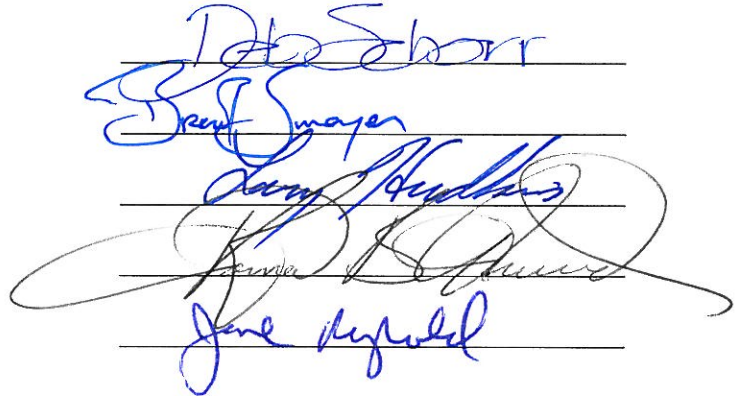 Deb Schorr
Brent Smoyer
Larry Hudkins
Jane Raybould